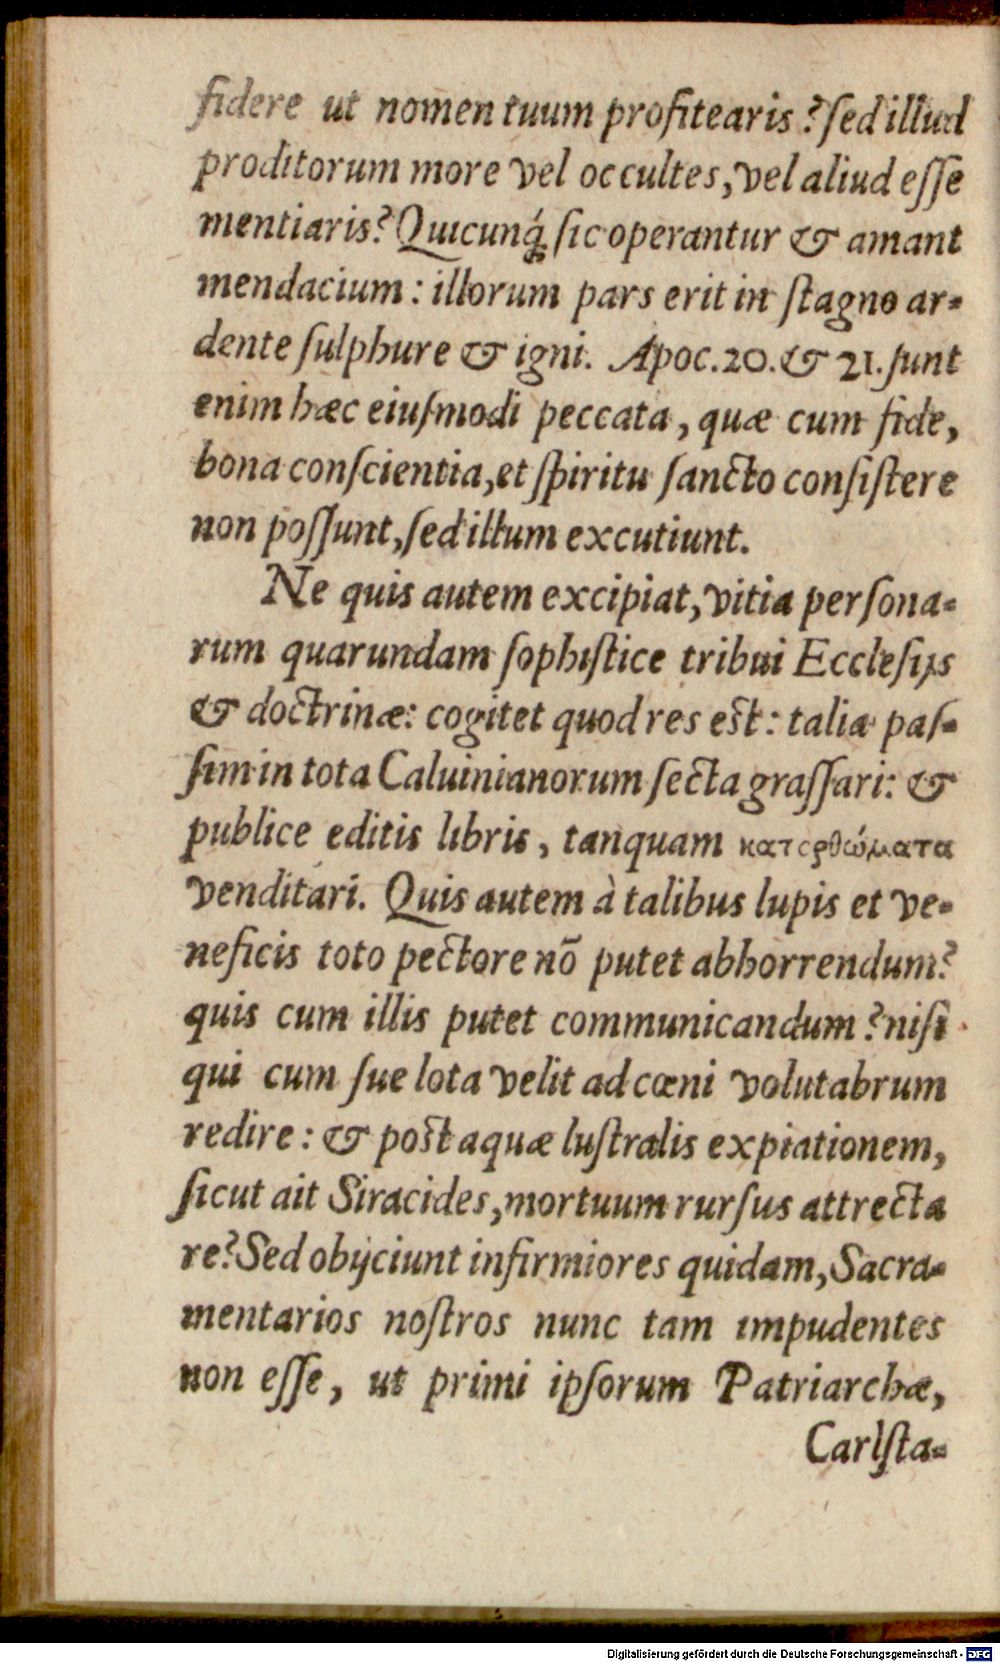 fidere ut nomen tuum profitearis? ſed illud
proditorum more vel occultes, vel aliud eſſe
mentiaris? Quicunq́; ſic operantur & amant
mendacium: illorum pars erit in ſtagno ar-
dente ſulphure & igni. Apoc. 20. & 21. ſunt
enim hæc eiuſmodi peccata, quæ cum fide,
bona conſcientia, et ſpiritu ſancto conſiſtere
non poſſunt, ſed illum excutiunt.
Ne quis autem excipiat, vitia perſona-
rum quarundam ſophiſtice tribui Eccleſijs
& doctrinæ: cogitet quod res est: talia paſ-
ſim in tota Caluinianorum ſecta graſſari: &
publice editis libris, tanquam κατορθώματα
venditari. Quis autem à talibus lupis et ve-
neficis toto pectore nõ putet abhorrendum?
quis cum illis putet communicandum? niſi
qui cum ſue lota velit ad cœni volutabrum
redire: & post aquæ luſtralis expiationem,
ſicut ait Siracides, mortuum rurſus attrecta
re? Sed obijciunt infirmiores quidam, Sacra-
mentarios noſtros nunc tam impudentes
non eſſe, ut primi ipſorum Patriarchæ,
Carlſta-
Digitalisierung gefördert durch die Deutsche Forschungsgemeinschaft - DFG